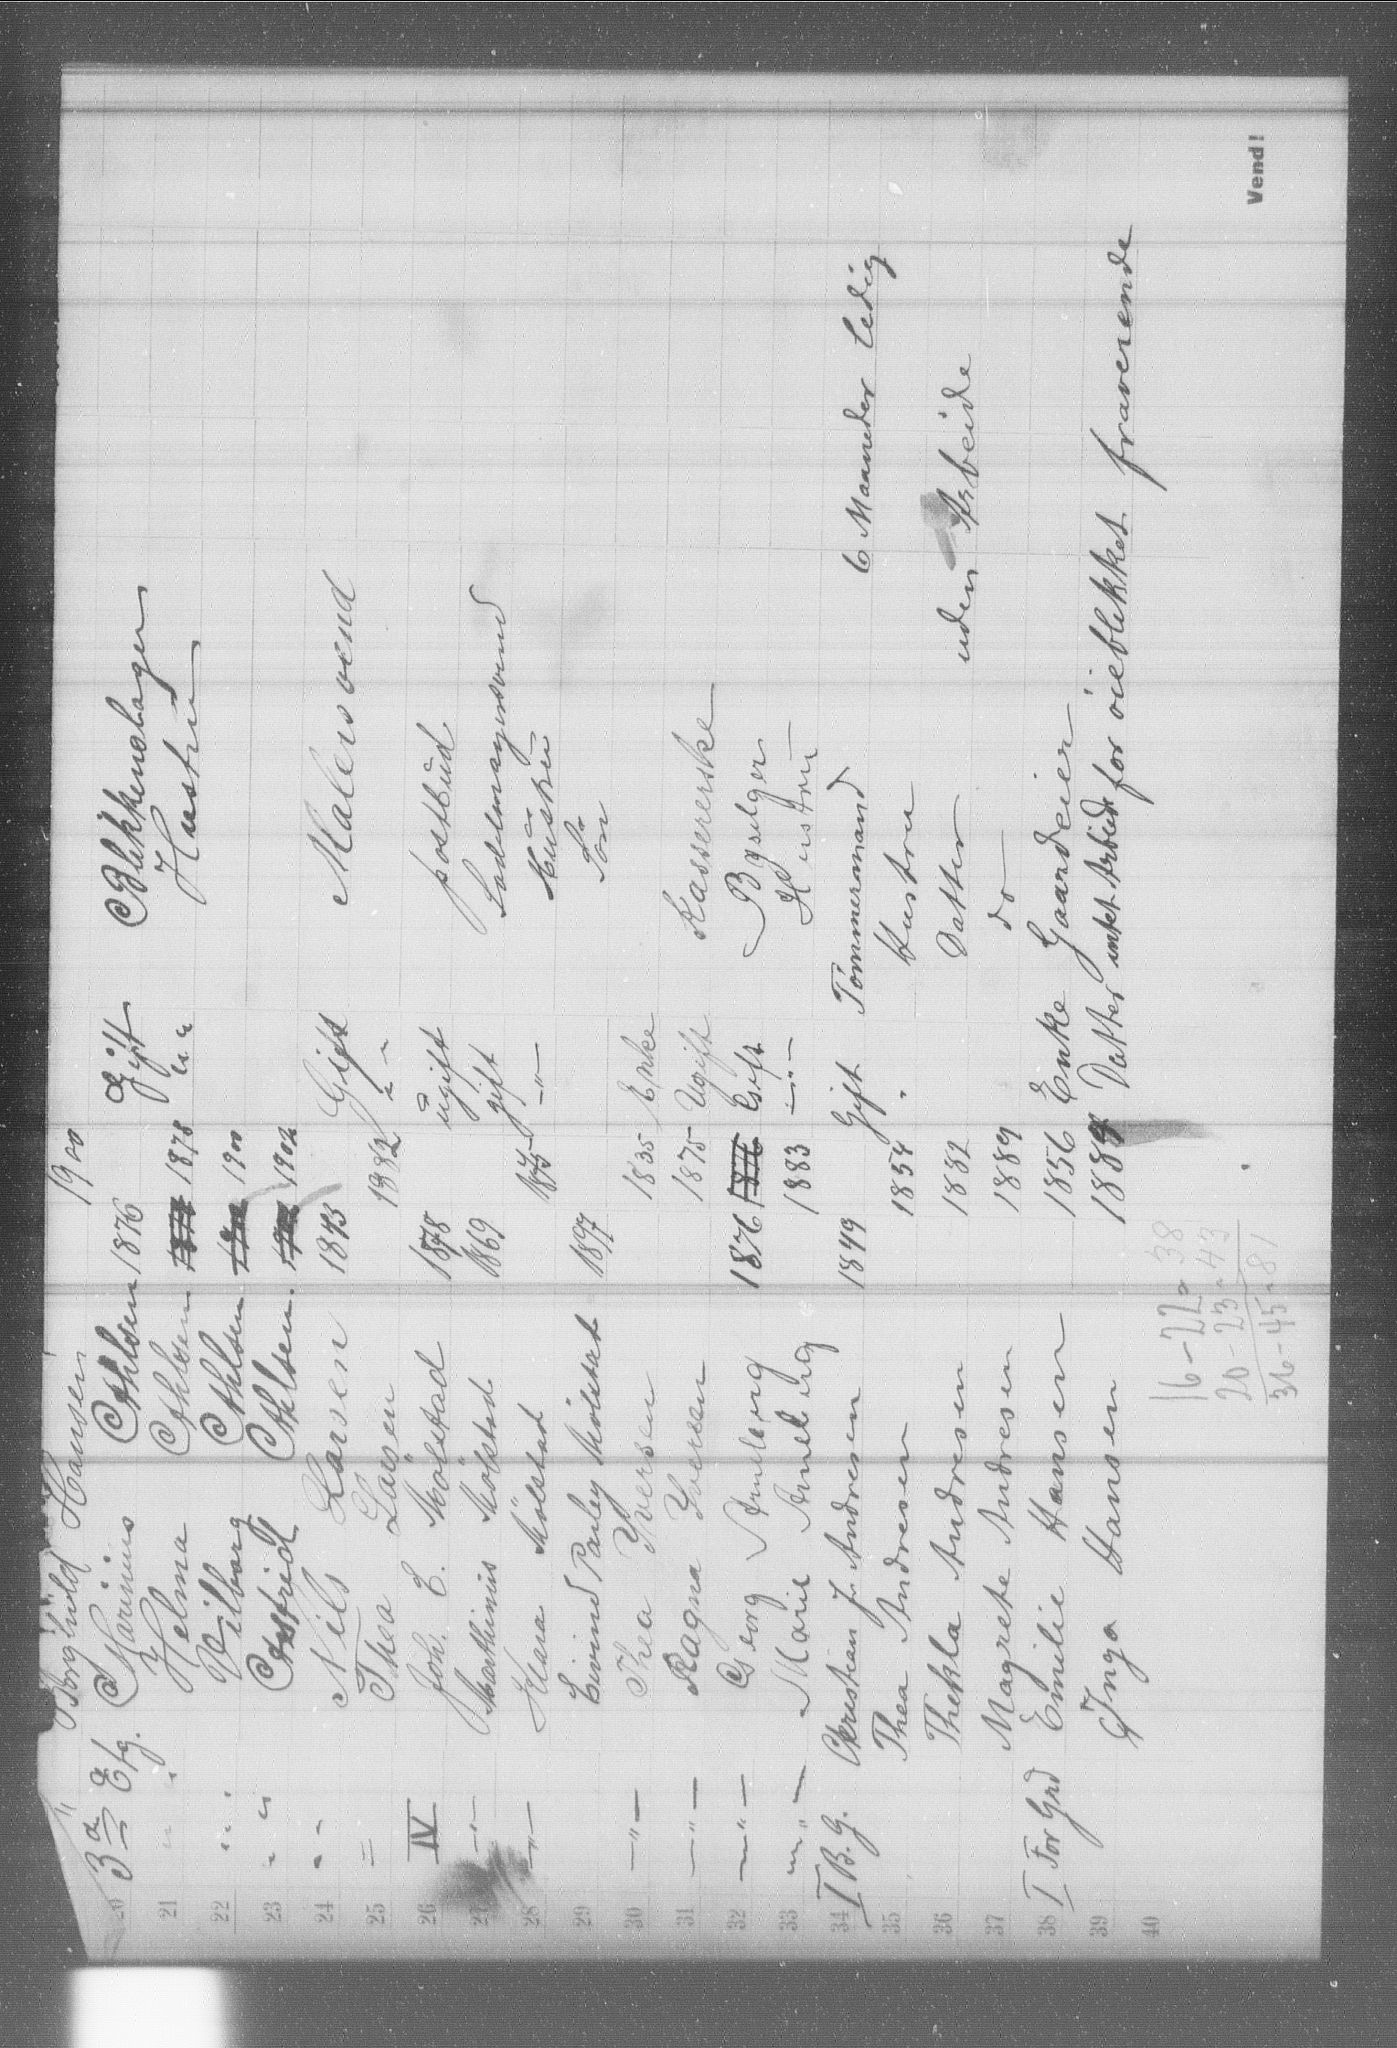 " Borghild Hansen 1900
20 3a Etg. Marinius Athlsen 1876 Gift Blikkenslager
21 " " Helma Athlsen 1878 " " Hustru
22 " " Vilborg Athlsen 1900
23 " " Astrid Athlsen 1902
24 " " Nils Larsen 1873 Gift Malersvend
25 = Thea Larsen 1882 " "
26 IV Joh. E. Mølstad 1878 ugift postbud
27 —"— Mathinius Mølstad 1869 gift Sadelmagersvend
28 —"— Hara Mølstad 1875 —"— Hustru
29 Eivind Parley Mølstad 1897 Søn
30 —"— Thea Iversen 1835 Enke
31 —"— Ragna Iversen 1875 Ugift Kassererske
32 —"— Georg Amelborg 1876 Gift Bysælger
33 —"— Marie Amelborg 1883 —"— Hustru
34 I B.G. Christian J. Andresen 1849 Gift Tømmermand 6 Maaneder ledig
35 Thea Andresen 1854 " Hustru
36 Thekla Andresen 1882 Datter uden Arbeide
37 Magrete Andresen 1889 do
38 I For Grd Emilie Hansen 1856 Enke Gaardeier
39 Inga Hansen 1889 Datter intet Arbeide for øieblikket fraverende
40
16 - 22 - 38
20 - 23 - 43
36 - 45 - 81
Vend!